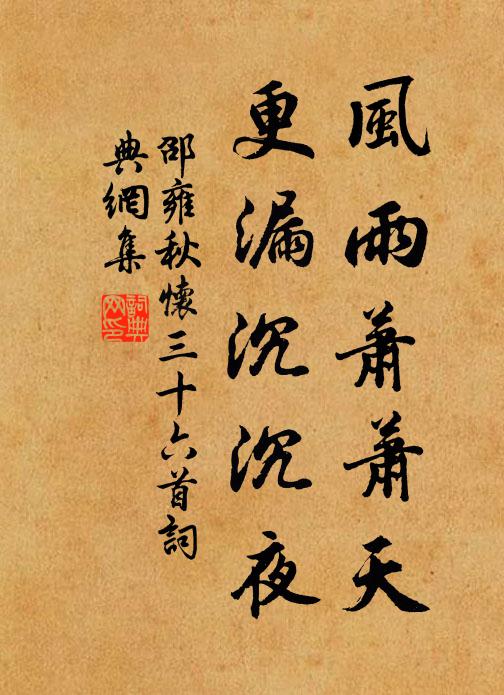 風雨蕭蕭天
更漏沉沉夜
邵雍秋懷三十六首詞
典網集
詞典網印